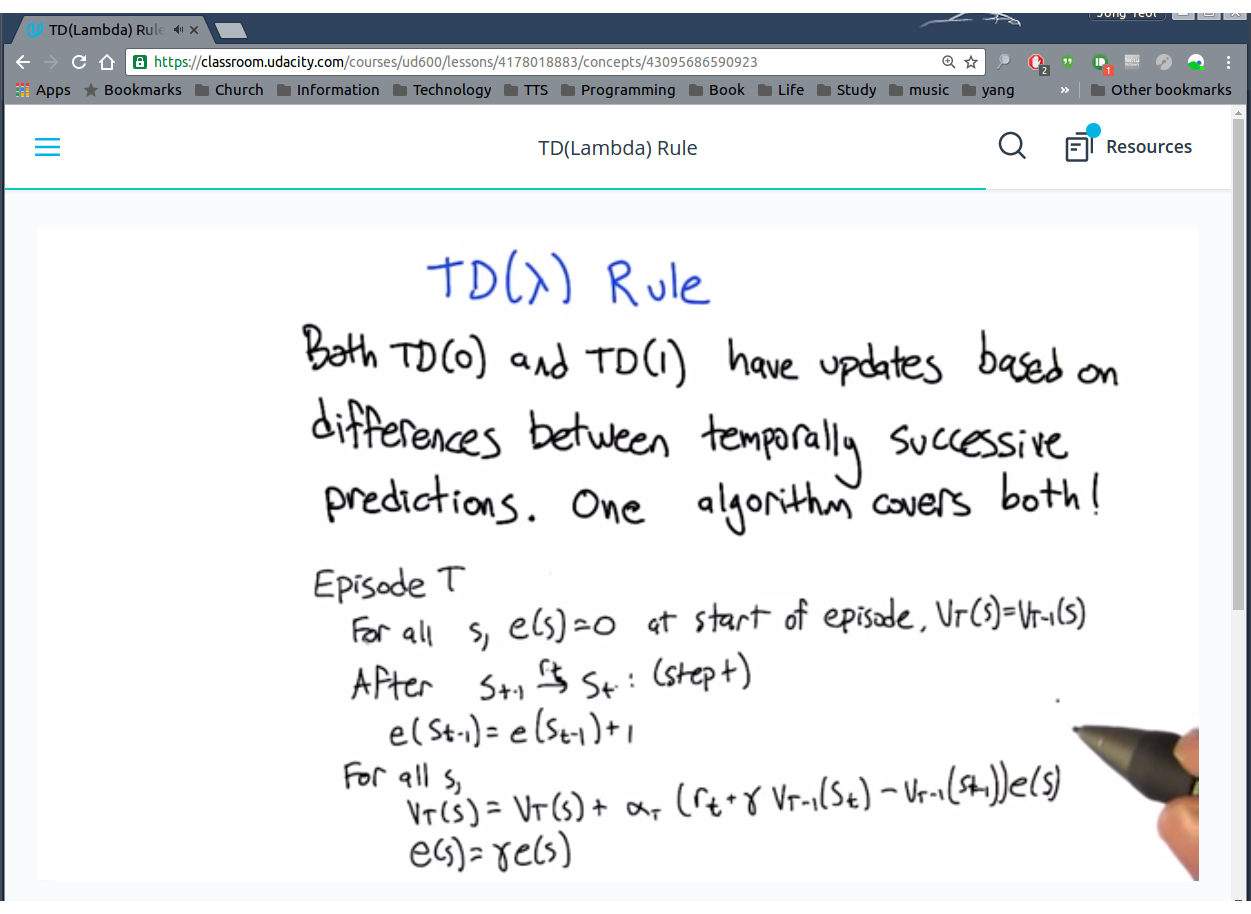 TD(Lambda) Rule
Jong Yeol
https://classroom.udacity.com/courses/ud600/lessons/4178018883/concepts/43095686590923
2
1
Apps Bookmarks Church Information Technology TTS Programming Book Life Study music yang » Other bookmarks
TD(Lambda) Rule
Resources
TD(λ) Rule
Both TD(0) and TD(1) have updates based on
differences between temporally successive
predictions. One algorithm covers both!
Episode T
For all s, e(s)=0 at start of episode, V_T(s)=V_{T-1}(s)
After s_{t-1} →^{r_t} s_t : (step t)
e(s_{t-1}) = e(s_{t-1})+1
For all s,
V_T(s) = V_T(s) + α_T (r_t + γ V_{T-1}(s_t) - V_{T-1}(s_{t-1}))e(s)
e(s) = γe(s)